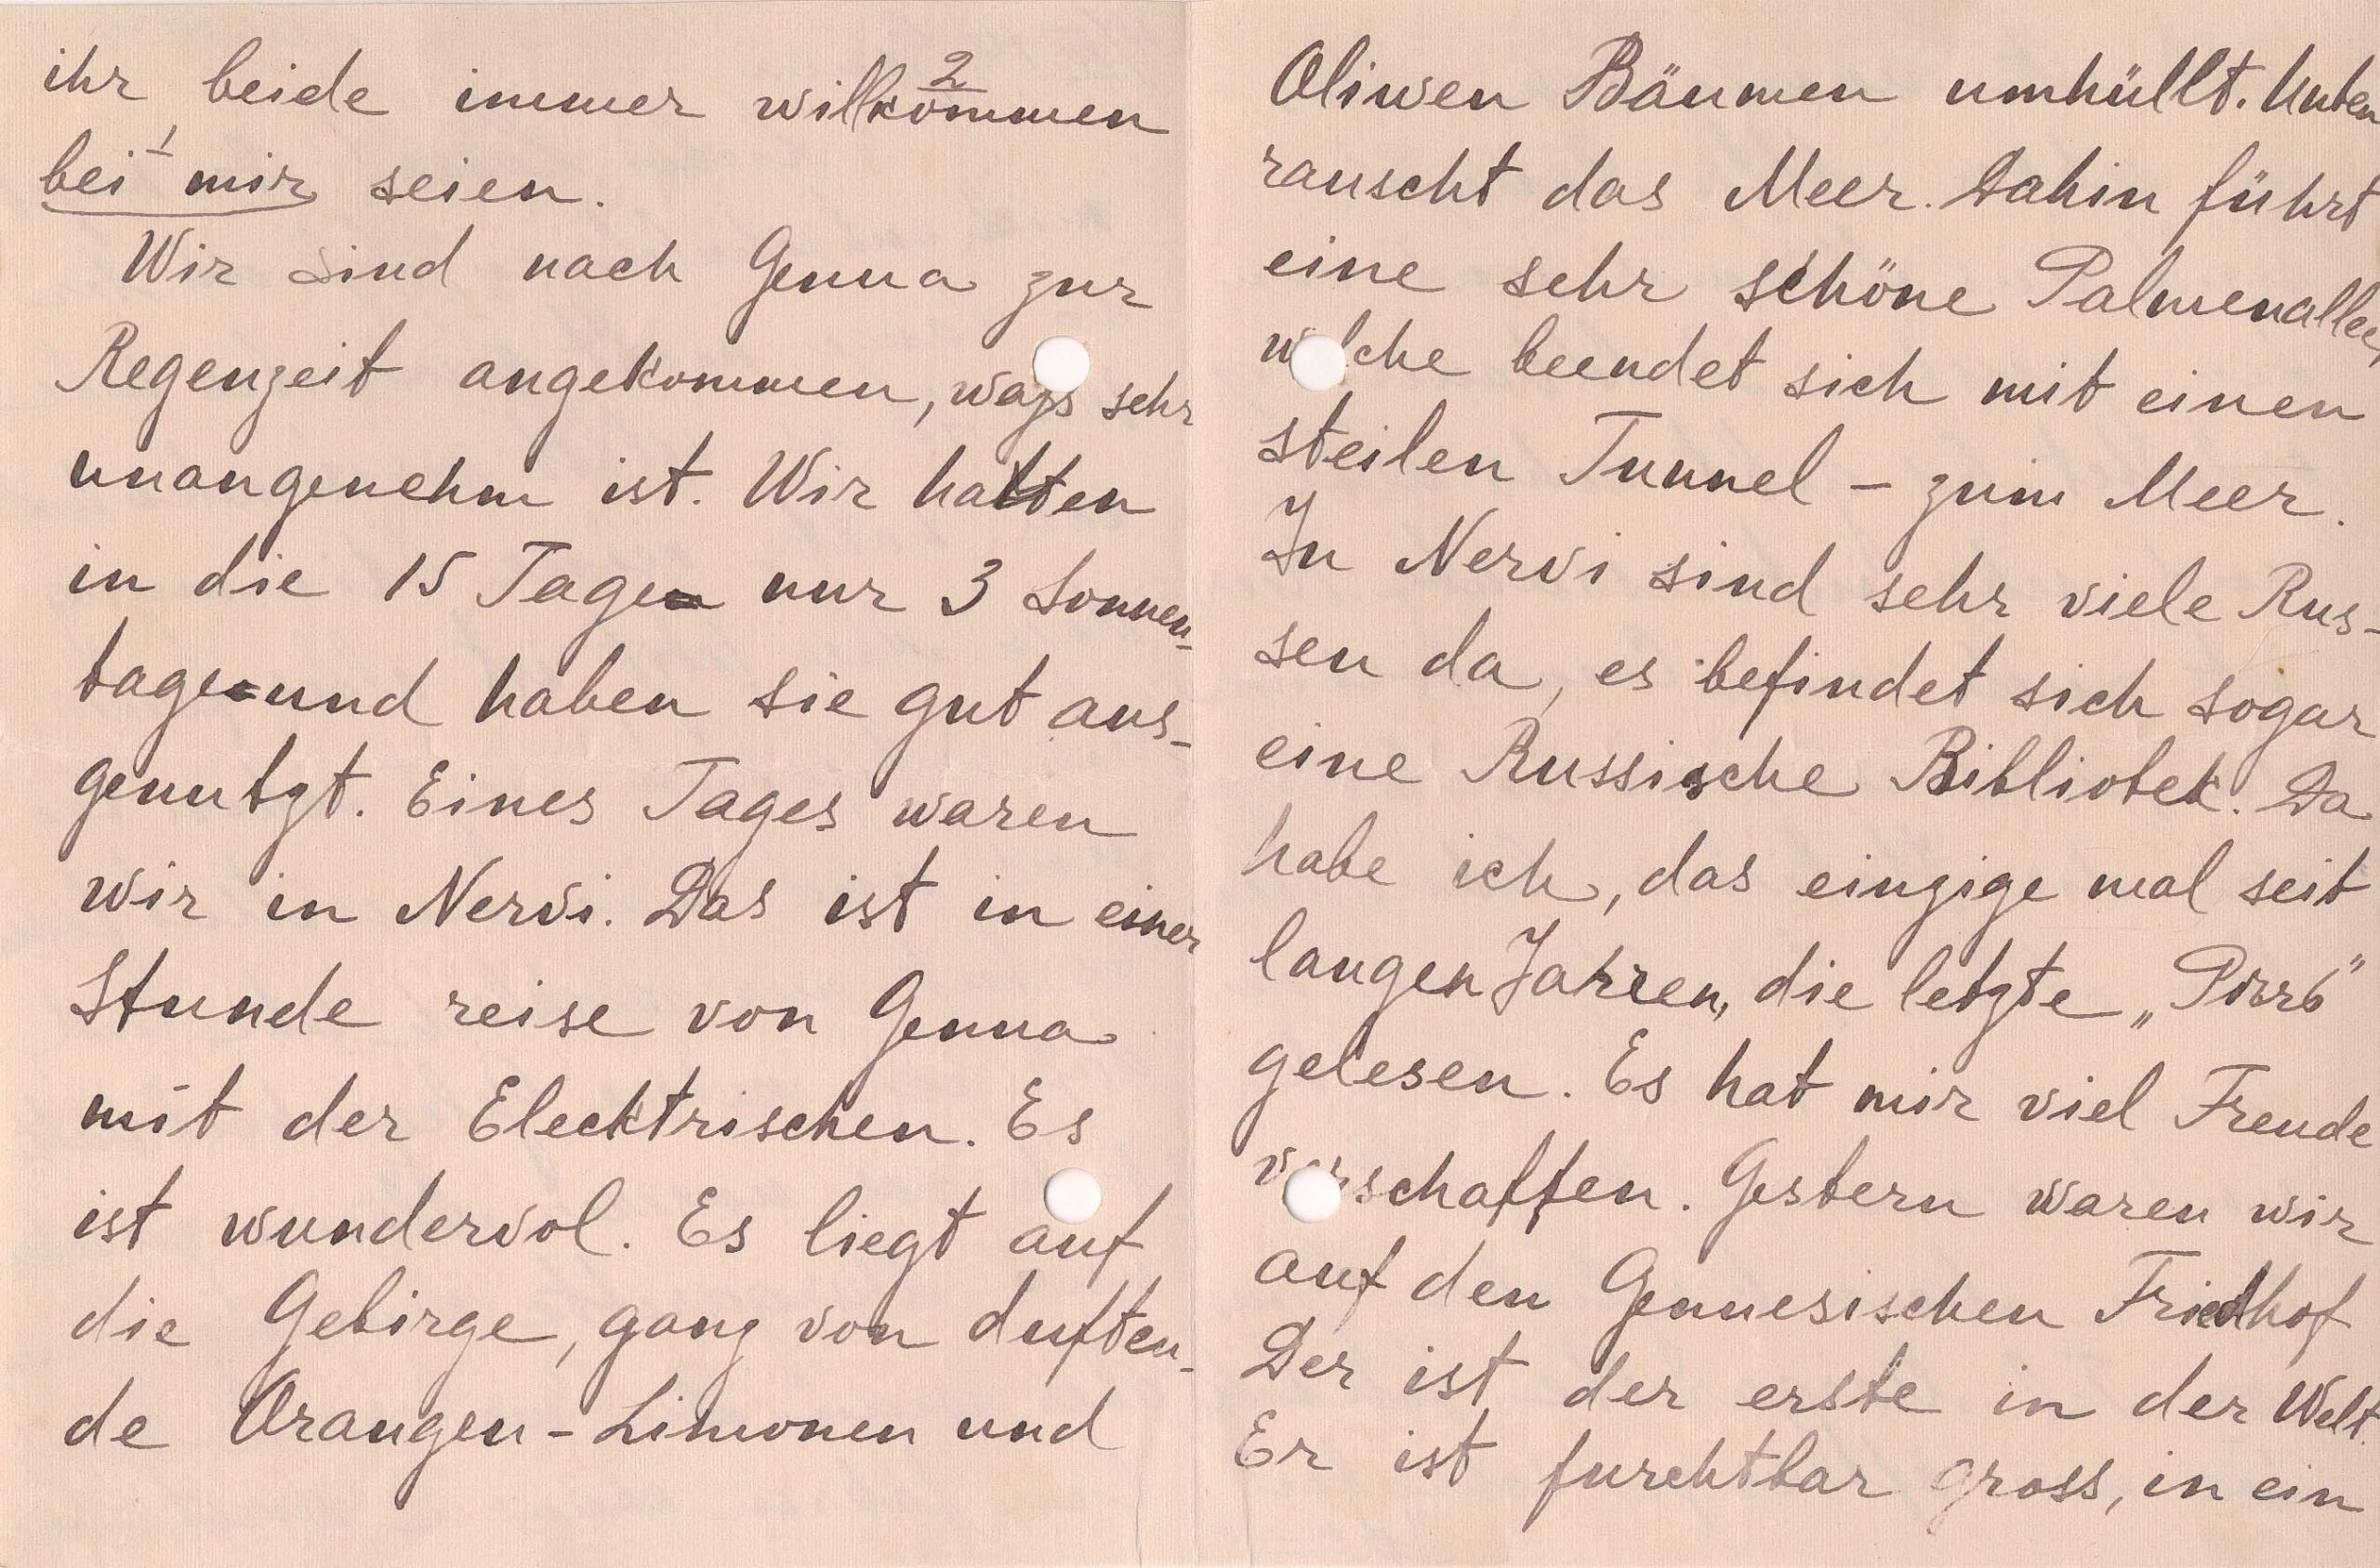 ihr beide immer willkommen
2
bei mir seien.
1
Wir sind nach Genua zur
Regenzeit angekommen, was sehr
unangenehm ist. Wir hatten
in die 15 Tage nur 3 Sonnen-
tage und haben sie gut aus-
genutzt. Eines Tages waren
wir in Nervi. Das ist in einer
Stunde reise von Genua
mit der Elecktrischen. Es
ist wundervol. Es liegt auf
die Gebirge, ganz von duften-
de Orangen-Limonen und
Oliwen Bäumen umhüllt. Unten
rauscht das Meer. Dahin führt
eine sehr schöne Palmenallee,
welche beendet sich mit einen
steilen Tunnel - zum Meer.
In Nervi sind sehr viele Rus-
sen da, es befindet sich sogar
eine Russische Bibliotek. Da
habe ich, das einzige mal seit
langen Jahren, die letzte
gelesen. Es hat mir viel Freude
verschaffen. Gestern waren wir
auf den Genuesischen Friedhof
Der ist der erste in der Welt.
Er ist furchtbar gross, in ein